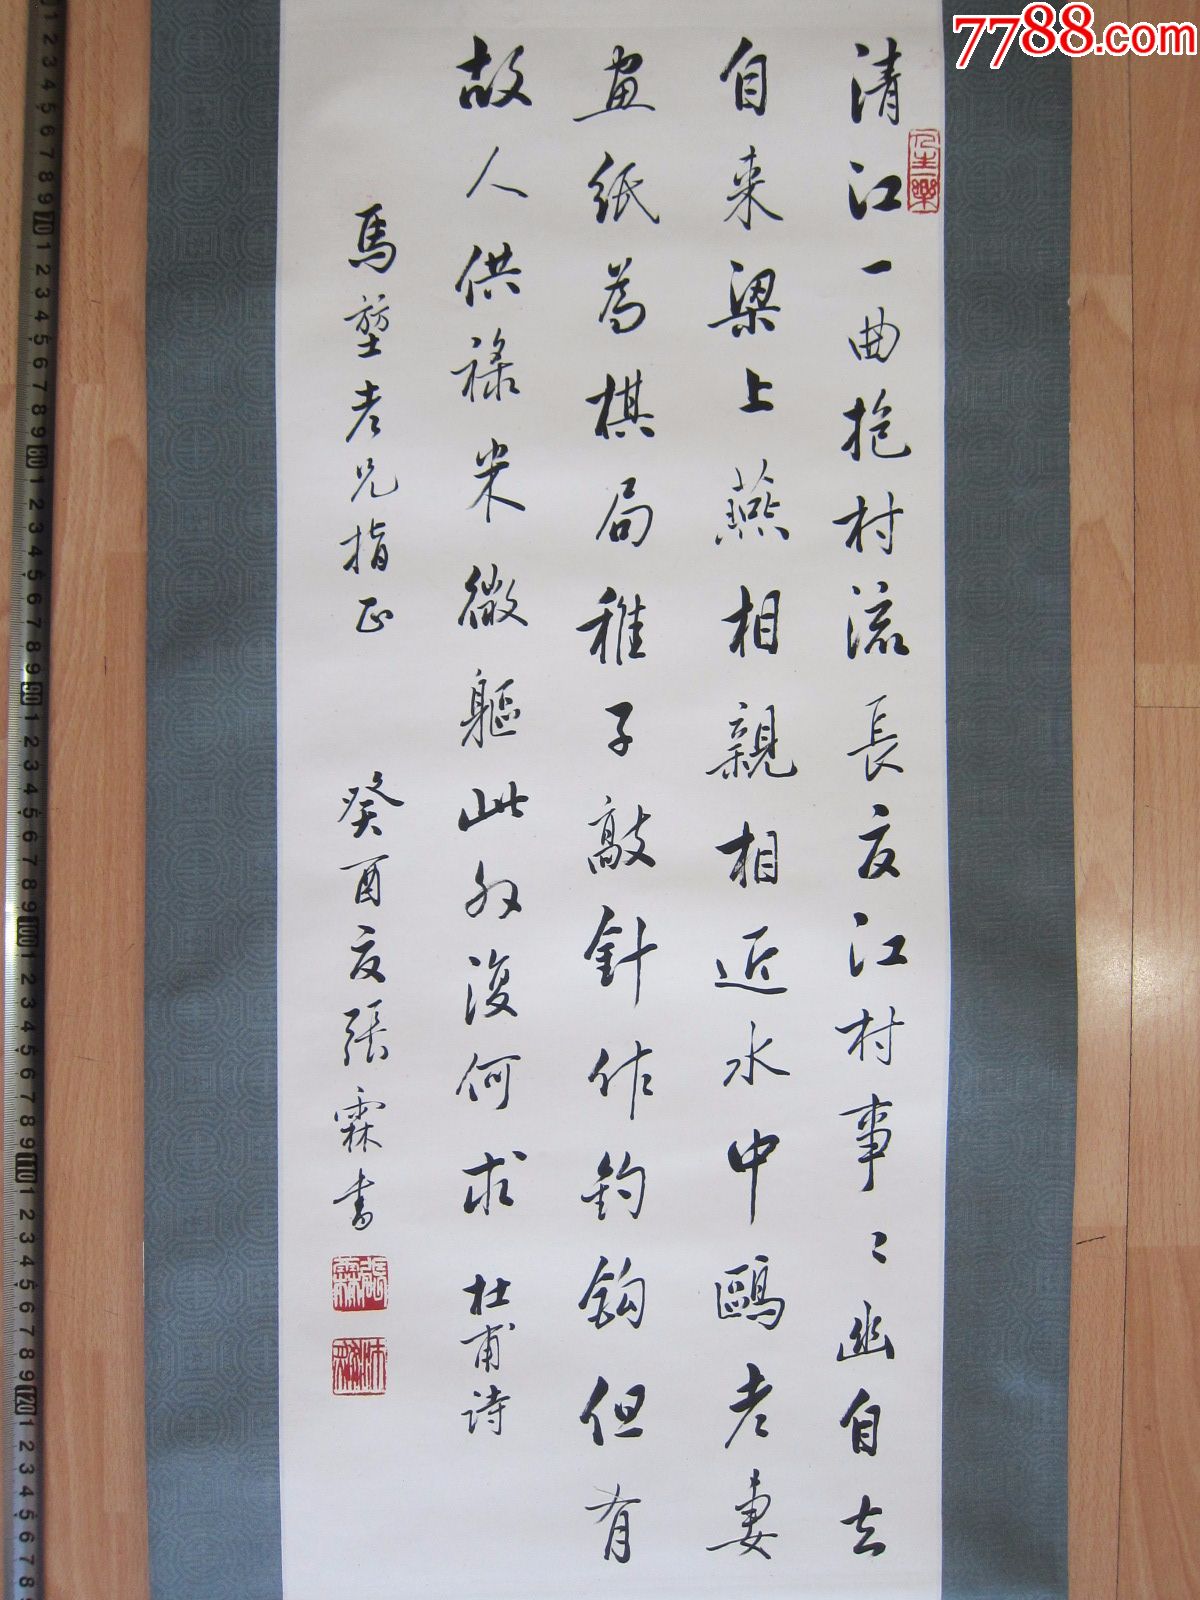 7788.com
清江一曲抱村流長夏江村事〻幽自去
自来梁上燕相親相近水中鷗老妻
画紙為棋局稚子敲針作釣鈎但有
故人供禄米微軀此外復何求 杜甫詩
馬堃老兄指正 癸酉夏張霖書
人生一樂
張霖